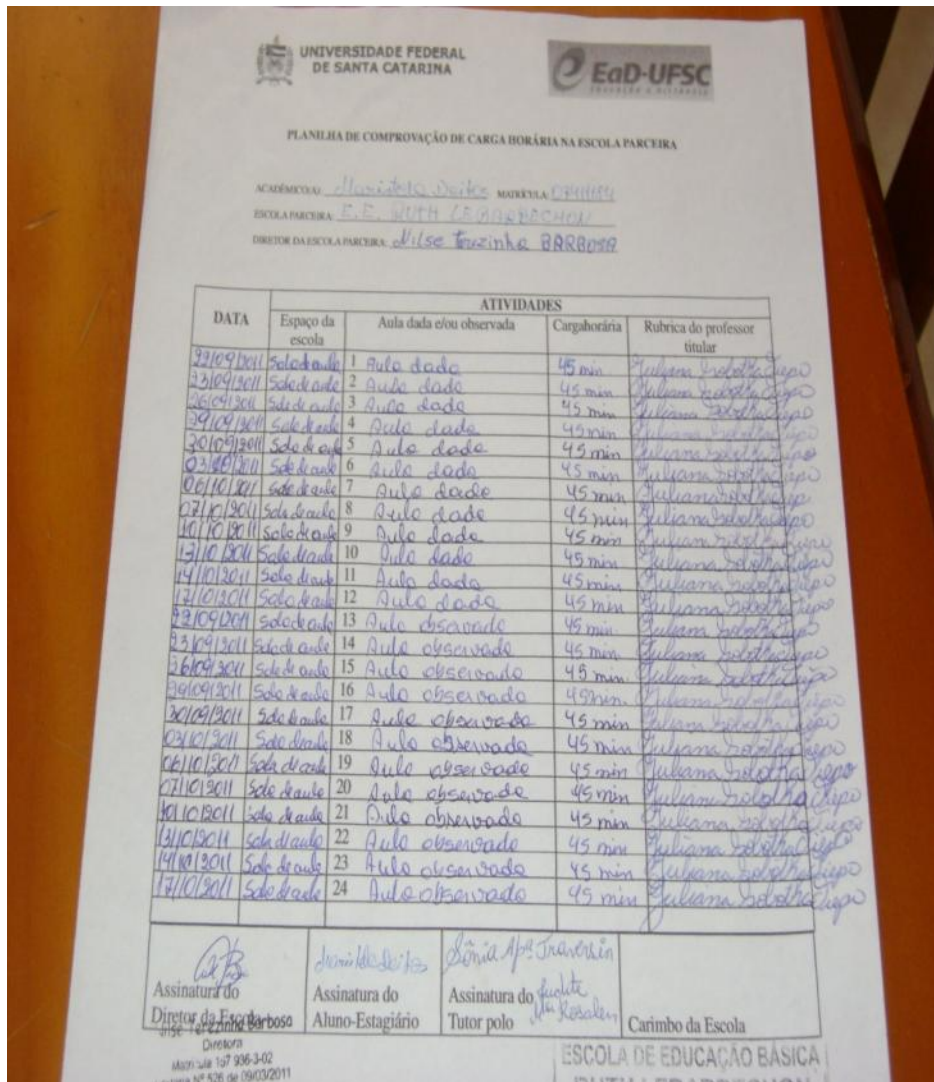 UNIVERSIDADE FEDERAL
DE SANTA CATARINA
EaD-UFSC
EDUCAÇÃO A DISTÂNCIA
PLANILHA DE COMPROVAÇÃO DE CARGA HORÁRIA NA ESCOLA PARCEIRA
ACADÊMICO(A): MATRÍCULA:
ESCOLA PARCEIRA: E.E. RUTH LEBARBECHON
DIRETOR DA ESCOLA PARCEIRA: Nilse Terezinha BARBOSA
DATA ATIVIDADES
Espaço da escola Aula dada e/ou observada Cargahorária Rubrica do professor titular
22/09/2011 Sala de aula 1 Aula dada 45 min Juliana
23/09/2011 Sala de aula 2 Aula dada 45 min Juliana
26/09/2011 Sala de aula 3 Aula dada 45 min Juliana
29/09/2011 Sala de aula 4 Aula dada 45 min Juliana
30/09/2011 Sala de aula 5 Aula dada 45 min Juliana
03/10/2011 Sala de aula 6 Aula dada 45 min Juliana
06/10/2011 Sala de aula 7 Aula dada 45 min Juliana
07/10/2011 Sala de aula 8 Aula dada 45 min Juliana
10/10/2011 Sala de aula 9 Aula dada 45 min Juliana
13/10/2011 Sala de aula 10 Aula dada 45 min Juliana
14/10/2011 Sala de aula 11 Aula dada 45 min Juliana
17/10/2011 Sala de aula 12 Aula dada 45 min Juliana
22/09/2011 Sala de aula 13 Aula observada 45 min Juliana
23/09/2011 Sala de aula 14 Aula observada 45 min Juliana
26/09/2011 Sala de aula 15 Aula observada 45 min Juliana
29/09/2011 Sala de aula 16 Aula observada 45 min Juliana
30/09/2011 Sala de aula 17 Aula observada 45 min Juliana
03/10/2011 Sala de aula 18 Aula observada 45 min Juliana
06/10/2011 Sala de aula 19 Aula observada 45 min Juliana
07/10/2011 Sala de aula 20 Aula observada 45 min Juliana
10/10/2011 Sala de aula 21 Aula observada 45 min Juliana
13/10/2011 Sala de aula 22 Aula observada 45 min Juliana
14/10/2011 Sala de aula 23 Aula observada 45 min Juliana
17/10/2011 Sala de aula 24 Aula observada 45 min Juliana
Sônia Apª Traversin
Assinatura do Diretor da Escola
Assinatura do Aluno-Estagiário
Assinatura do Tutor polo
Carimbo da Escola
Terezinha Barbosa
Diretora
Matrícula 197 936-3-02
Nº 526 de 09/03/2011
ESCOLA DE EDUCAÇÃO BÁSICA